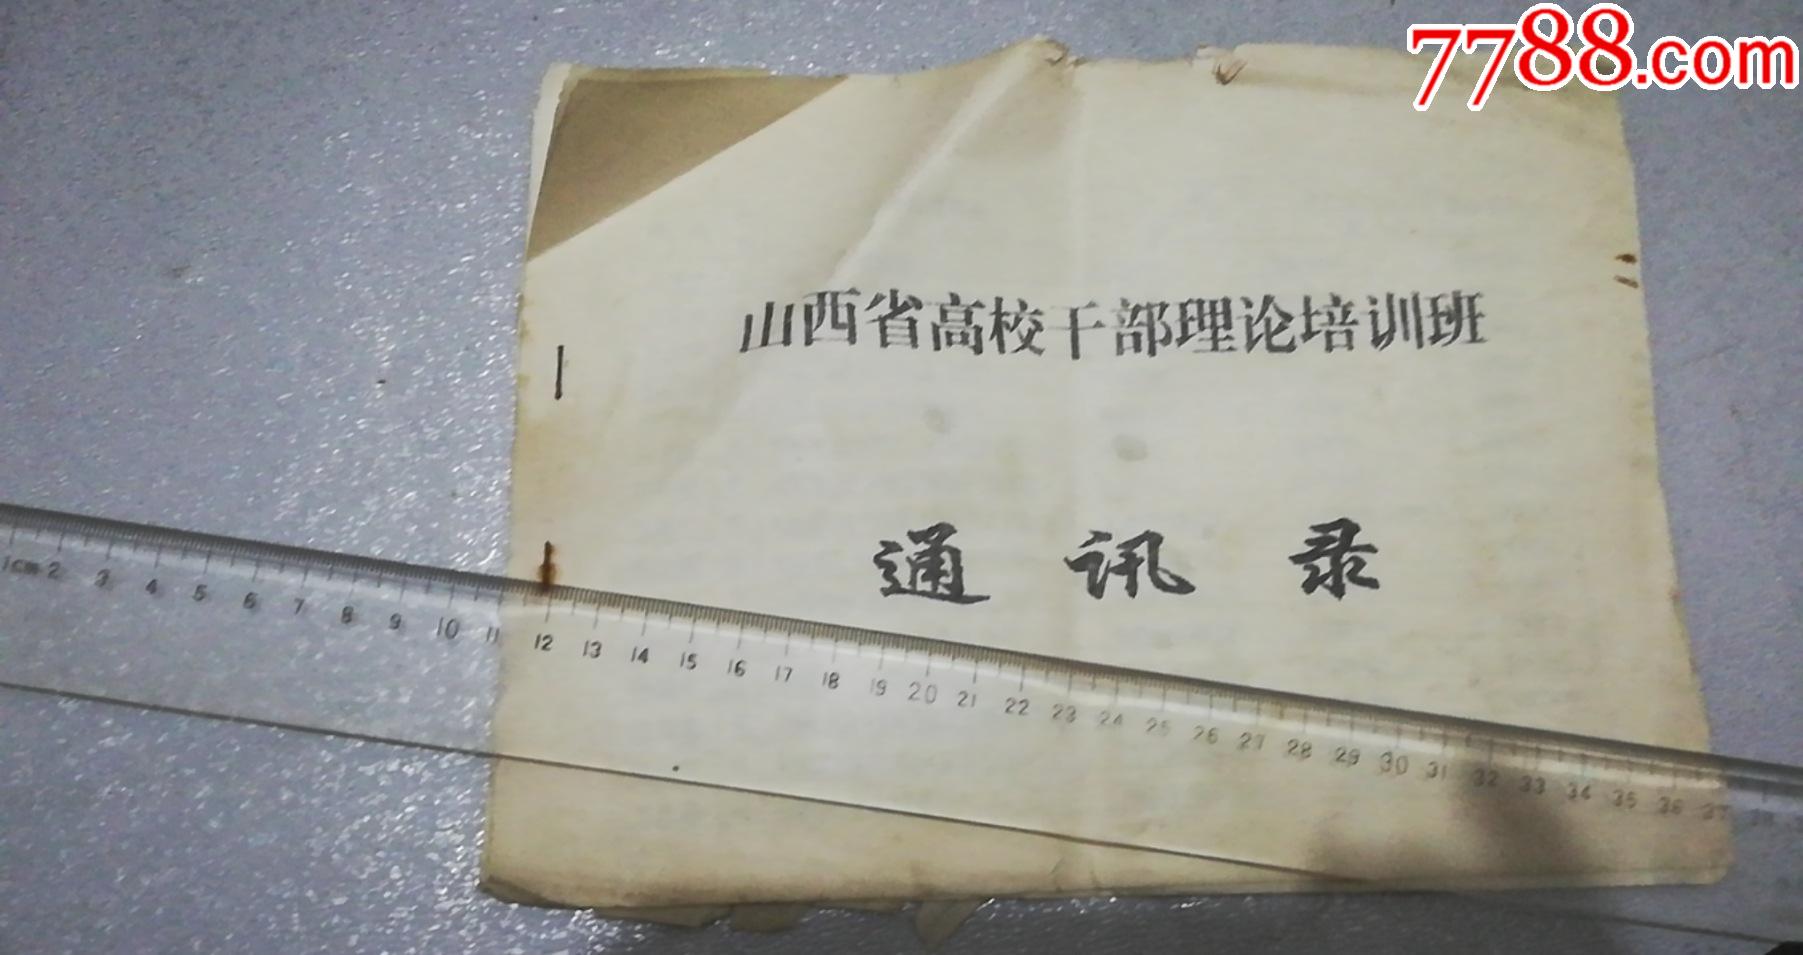 7788.com
山西省高校干部理论培训班
通讯录
1cm 2 3 4 5 6 7 8 9 10 11 12 13 14 15 16 17 18 19 20 21 22 23 24 25 26 27 28 29 30 31 32 33 34 35 36 37